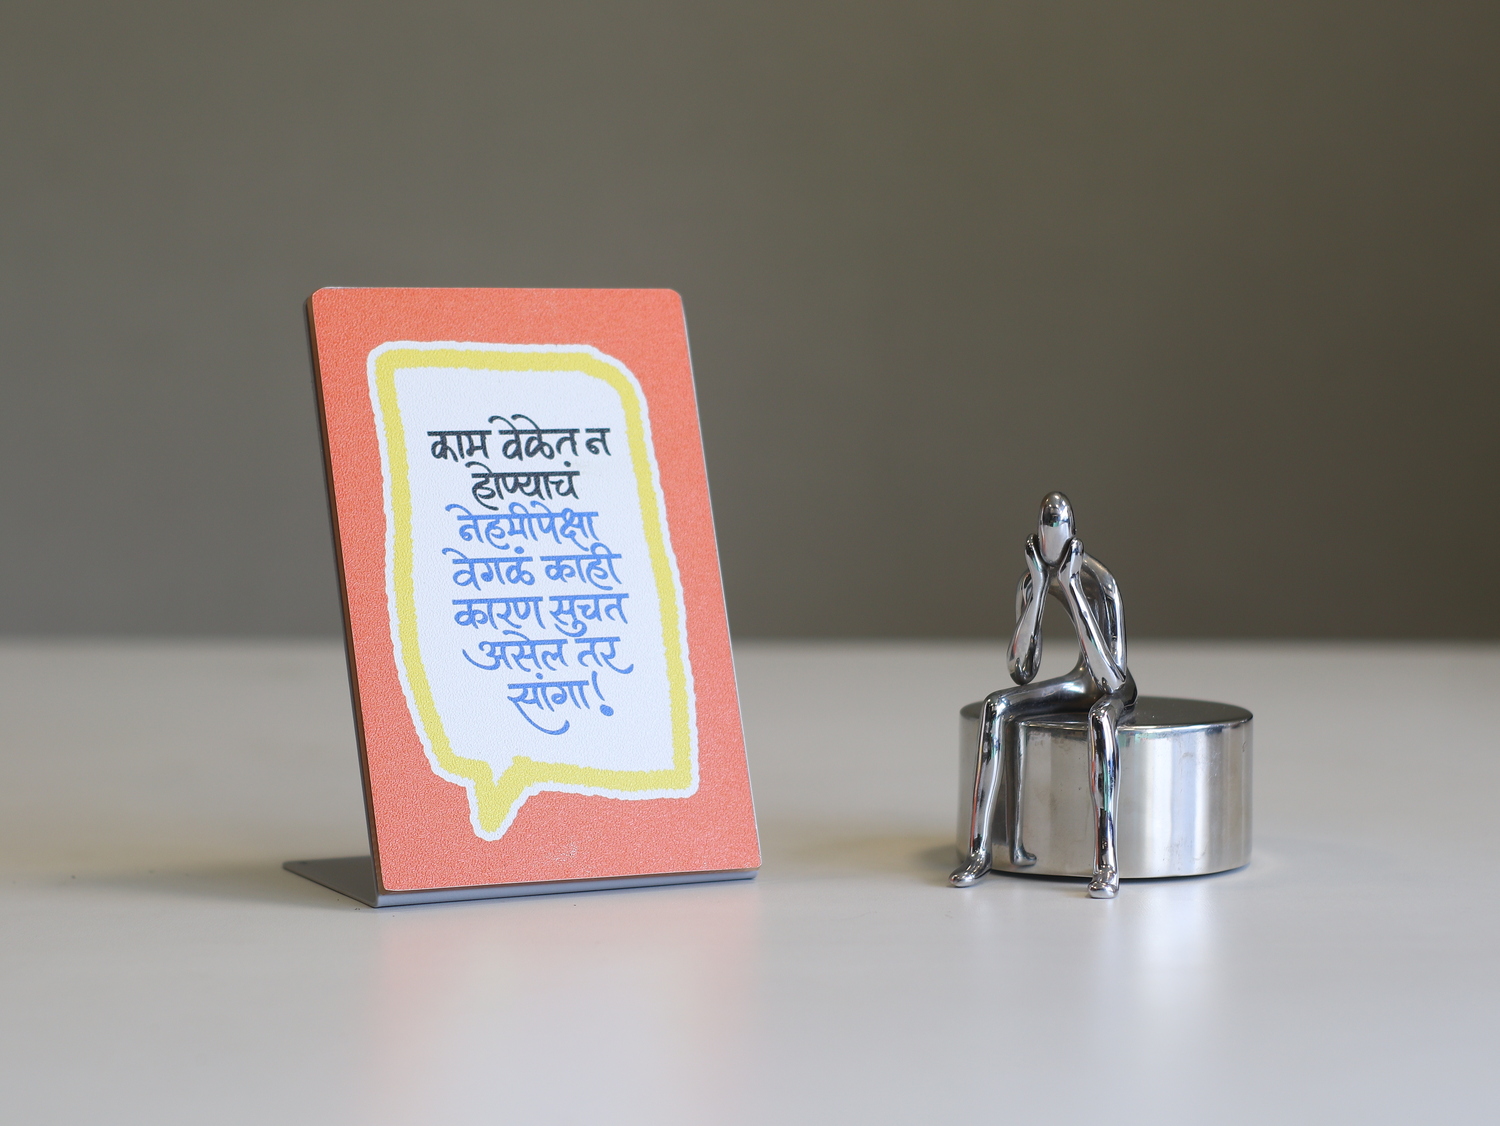 काम वेळेत न
होण्याचं
नेहमीपेक्षा
वेगळं काही
कारण सुचत
असेल तर
सांगा!